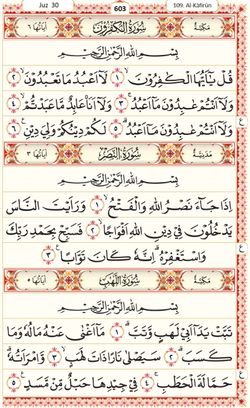 Juz 30 603 109. Al-Kāfirūn
مكية سورة الكفرون آياتها ٦
بِسْمِ اللهِ الرَّحْمٰنِ الرَّحِيْمِ
قُلْ يٰٓاَيُّهَا الْكٰفِرُوْنَ ١ لَآ اَعْبُدُ مَا تَعْبُدُوْنَ ٢
وَلَآ اَنْتُمْ عٰبِدُوْنَ مَآ اَعْبُدُ ٣ وَلَآ اَنَا عَابِدٌ مَّا عَبَدْتُّمْ ٤
وَلَآ اَنْتُمْ عٰبِدُوْنَ مَآ اَعْبُدُ ٥ لَكُمْ دِيْنُكُمْ وَلِيَ دِيْنِ ٦ ع
مدنية سورة النصر آياتها ٣
بِسْمِ اللهِ الرَّحْمٰنِ الرَّحِيْمِ
اِذَا جَآءَ نَصْرُ اللهِ وَالْفَتْحُ ١ وَرَاَيْتَ النَّاسَ
يَدْخُلُوْنَ فِيْ دِيْنِ اللهِ اَفْوَاجًا ٢ فَسَبِّحْ بِحَمْدِ رَبِّكَ
وَاسْتَغْفِرْهُ اِنَّهٗ كَانَ تَوَّابًا ٣ ع
مكية سورة اللهب آياتها ٥
بِسْمِ اللهِ الرَّحْمٰنِ الرَّحِيْمِ
تَبَّتْ يَدَآ اَبِيْ لَهَبٍ وَّتَبَّ ١ مَآ اَغْنٰى عَنْهُ مَالُهٗ وَمَا
كَسَبَ ٢ سَيَصْلٰى نَارًا ذَاتَ لَهَبٍ ٣ وَّامْرَاَتُهٗ
حَمَّالَةَ الْحَطَبِ ٤ فِيْ جِيْدِهَا حَبْلٌ مِّنْ مَّسَدٍ ٥ ع